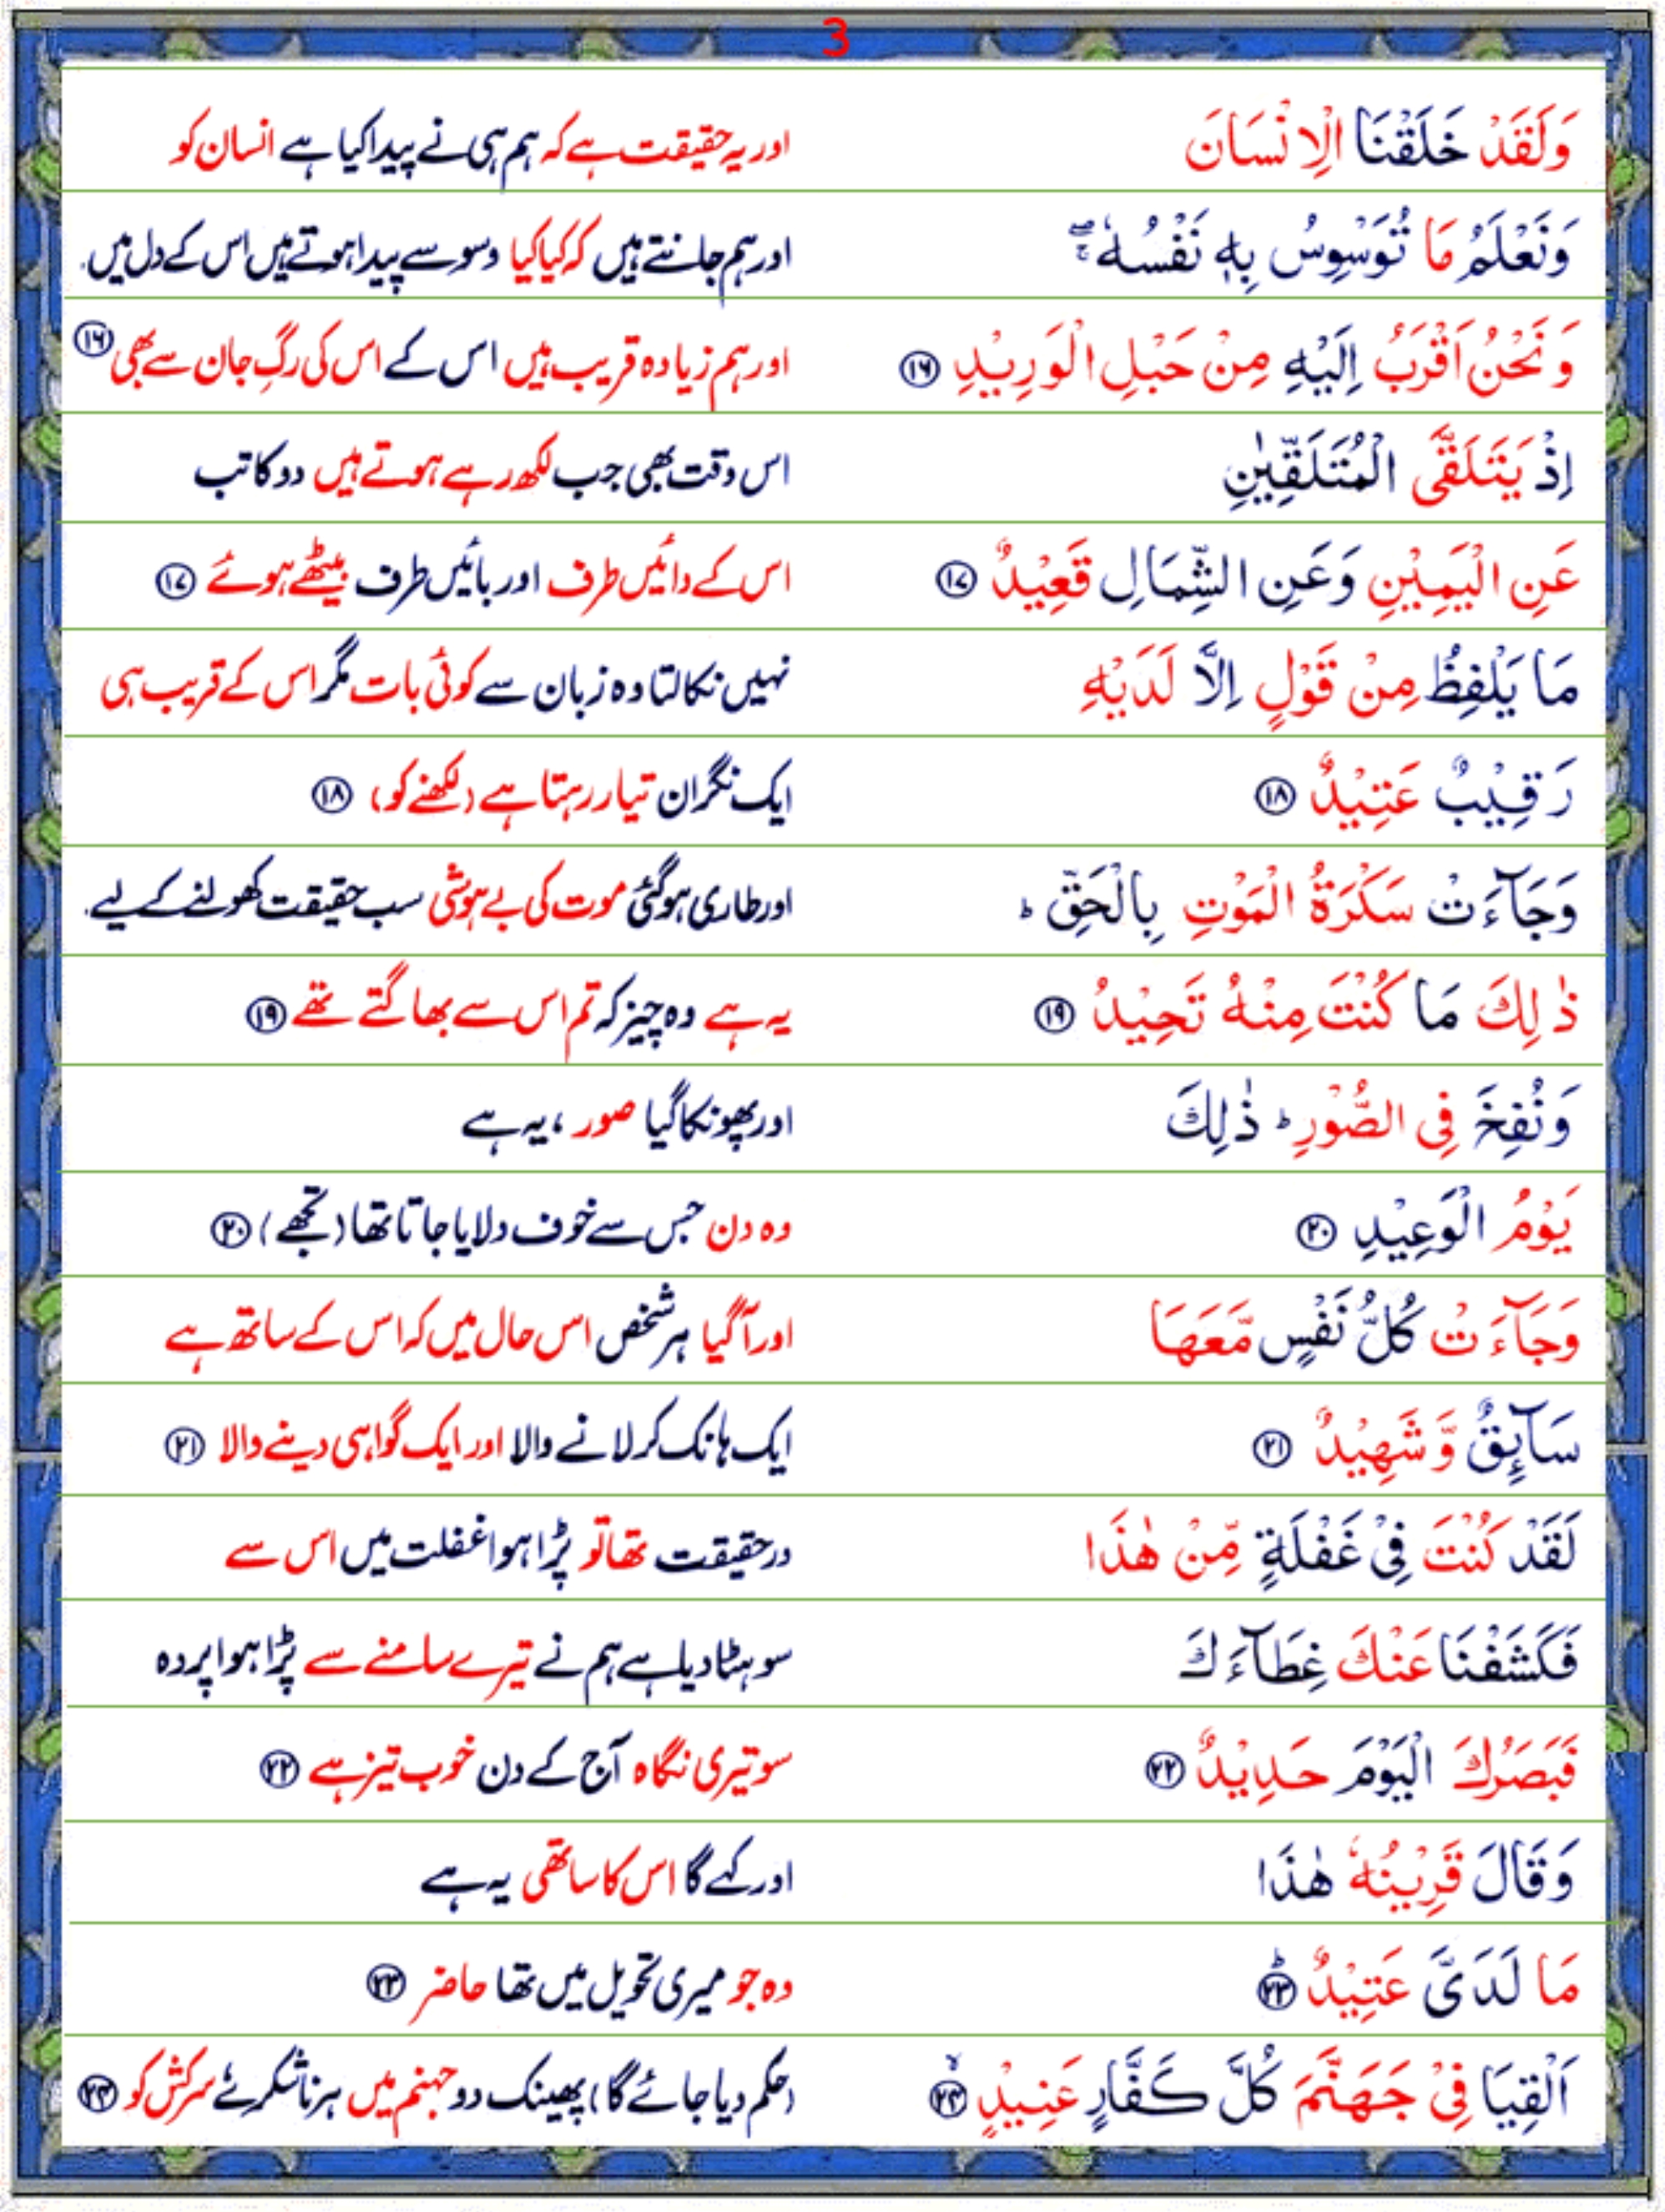 3
وَلَقَدْ خَلَقْنَا الْاِنْسَانَ اور یہ حقیقت ہے کہ ہم ہی نے پیدا کیا ہے انسان کو
وَنَعْلَمُ مَا تُوَسْوِسُ بِهٖ نَفْسُهٗ ۖۚ اور ہم جانتے ہیں کہ کیا کیا وسوسے پیدا ہوتے ہیں اس کے دل میں
وَنَحْنُ اَقْرَبُ اِلَيْهِ مِنْ حَبْلِ الْوَرِيْدِ ۝۱۶ اور ہم زیادہ قریب ہیں اس کے اس کی رگِ جان سے بھی ۝۱۶
اِذْ يَتَلَقَّى الْمُتَلَقِّيٰنِ اس وقت بھی جب لکھ رہے ہوتے ہیں دو کاتب
عَنِ الْيَمِيْنِ وَعَنِ الشِّمَالِ قَعِيْدٌ ۝۱۷ اس کے دائیں طرف اور بائیں طرف بیٹھے ہوئے ۝۱۷
مَا يَلْفِظُ مِنْ قَوْلٍ اِلَّا لَدَيْهِ نہیں نکالتا وہ زبان سے کوئی بات مگر اس کے قریب ہی
رَقِيْبٌ عَتِيْدٌ ۝۱۸ ایک نگران تیار رہتا ہے (لکھنے کو) ۝۱۸
وَجَآءَتْ سَكْرَةُ الْمَوْتِ بِالْحَقِّ ؕ اور طاری ہو گئی موت کی بے ہوشی سب حقیقت کھولنے کے لیے۔
ذٰلِكَ مَا كُنْتَ مِنْهُ تَحِيْدُ ۝۱۹ یہ ہے وہ چیز کہ تم اس سے بھاگتے تھے ۝۱۹
وَنُفِخَ فِى الصُّوْرِ ؕ ذٰلِكَ اور پھونکا گیا صور، یہ ہے
يَوْمُ الْوَعِيْدِ ۝۲۰ وہ دن جس سے خوف دلایا جاتا تھا (تجھے) ۝۲۰
وَجَآءَتْ كُلُّ نَفْسٍ مَّعَهَا اور آ گیا ہر شخص اس حال میں کہ اس کے ساتھ ہے
سَآئِقٌ وَّشَهِيْدٌ ۝۲۱ ایک ہانک کر لانے والا اور ایک گواہی دینے والا ۝۲۱
لَقَدْ كُنْتَ فِىْ غَفْلَةٍ مِّنْ هٰذَا درحقیقت تھا تو پڑا ہوا غفلت میں اس سے
فَكَشَفْنَا عَنْكَ غِطَآءَكَ سو ہٹا دیا ہے ہم نے تیرے سامنے سے پڑا ہوا پردہ
فَبَصَرُكَ الْيَوْمَ حَدِيْدٌ ۝۲۲ سو تیری نگاہ آج کے دن خوب تیز ہے ۝۲۲
وَقَالَ قَرِيْنُهٗ هٰذَا اور کہے گا اس کا ساتھی یہ ہے
مَا لَدَىَّ عَتِيْدٌ ؕ۝۲۳ وہ جو میری تحویل میں تھا حاضر ۝۲۳
اَلْقِيَا فِىْ جَهَنَّمَ كُلَّ كَفَّارٍ عَنِيْدٍ ۙ۝۲۴ (حکم دیا جائے گا) پھینک دو جہنم میں ہر ناشکرے سرکش کو ۝۲۴